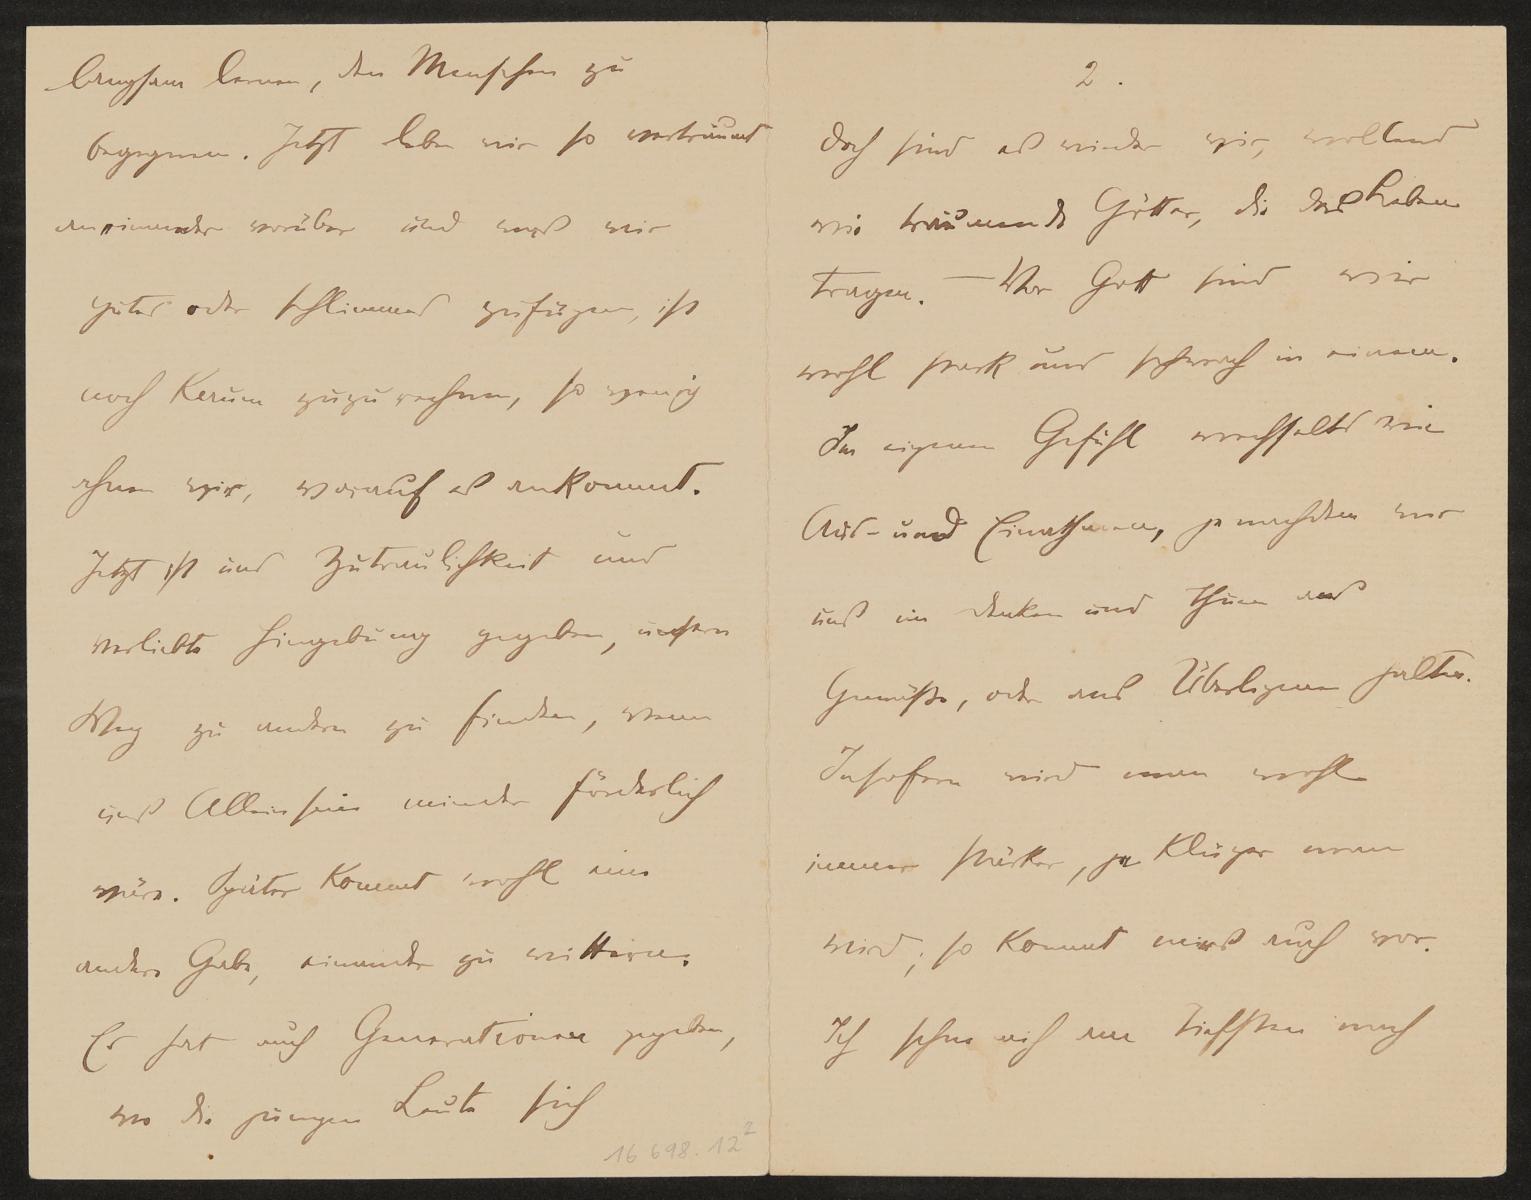 langsam lernen, den Menschen zu
begegnen. Jetzt leben wir so verträumt
aneinander vorüber und was wir
gutes oder schlimmes zufügen, ist
noch kaum zuzurechnen, so wenig
ahnen wir, worauf es ankommt.
Jetzt ist uns Zutraulichkeit und
verliebte Hingebung gegeben, unsern
Weg zu andern zu finden, wenn
uns Alleinsein minder förderlich
wäre. Später kommt wohl eine
andere Gabe, einander zu wittern.
Es hat auch Generationen gegeben,
wo die jungen Leute sich
16 698.12²
2.
Doch sind es wieder wir, wollend
wie träumende Götter, die das Leben
tragen. — Vor Gott sind wir
wohl stark und schwach in einem.
Im eigenen Gefühl wechselts wie
Aus- und Einathmen, je nachdem wir
uns im Denken und Thuen ans
Gemäße, oder ans Überlegene halten.
Insofern wird man wohl
immer stärker, je klüger man
wird; so kommt mirs auch vor.
Ich sehne mich am tiefsten nach